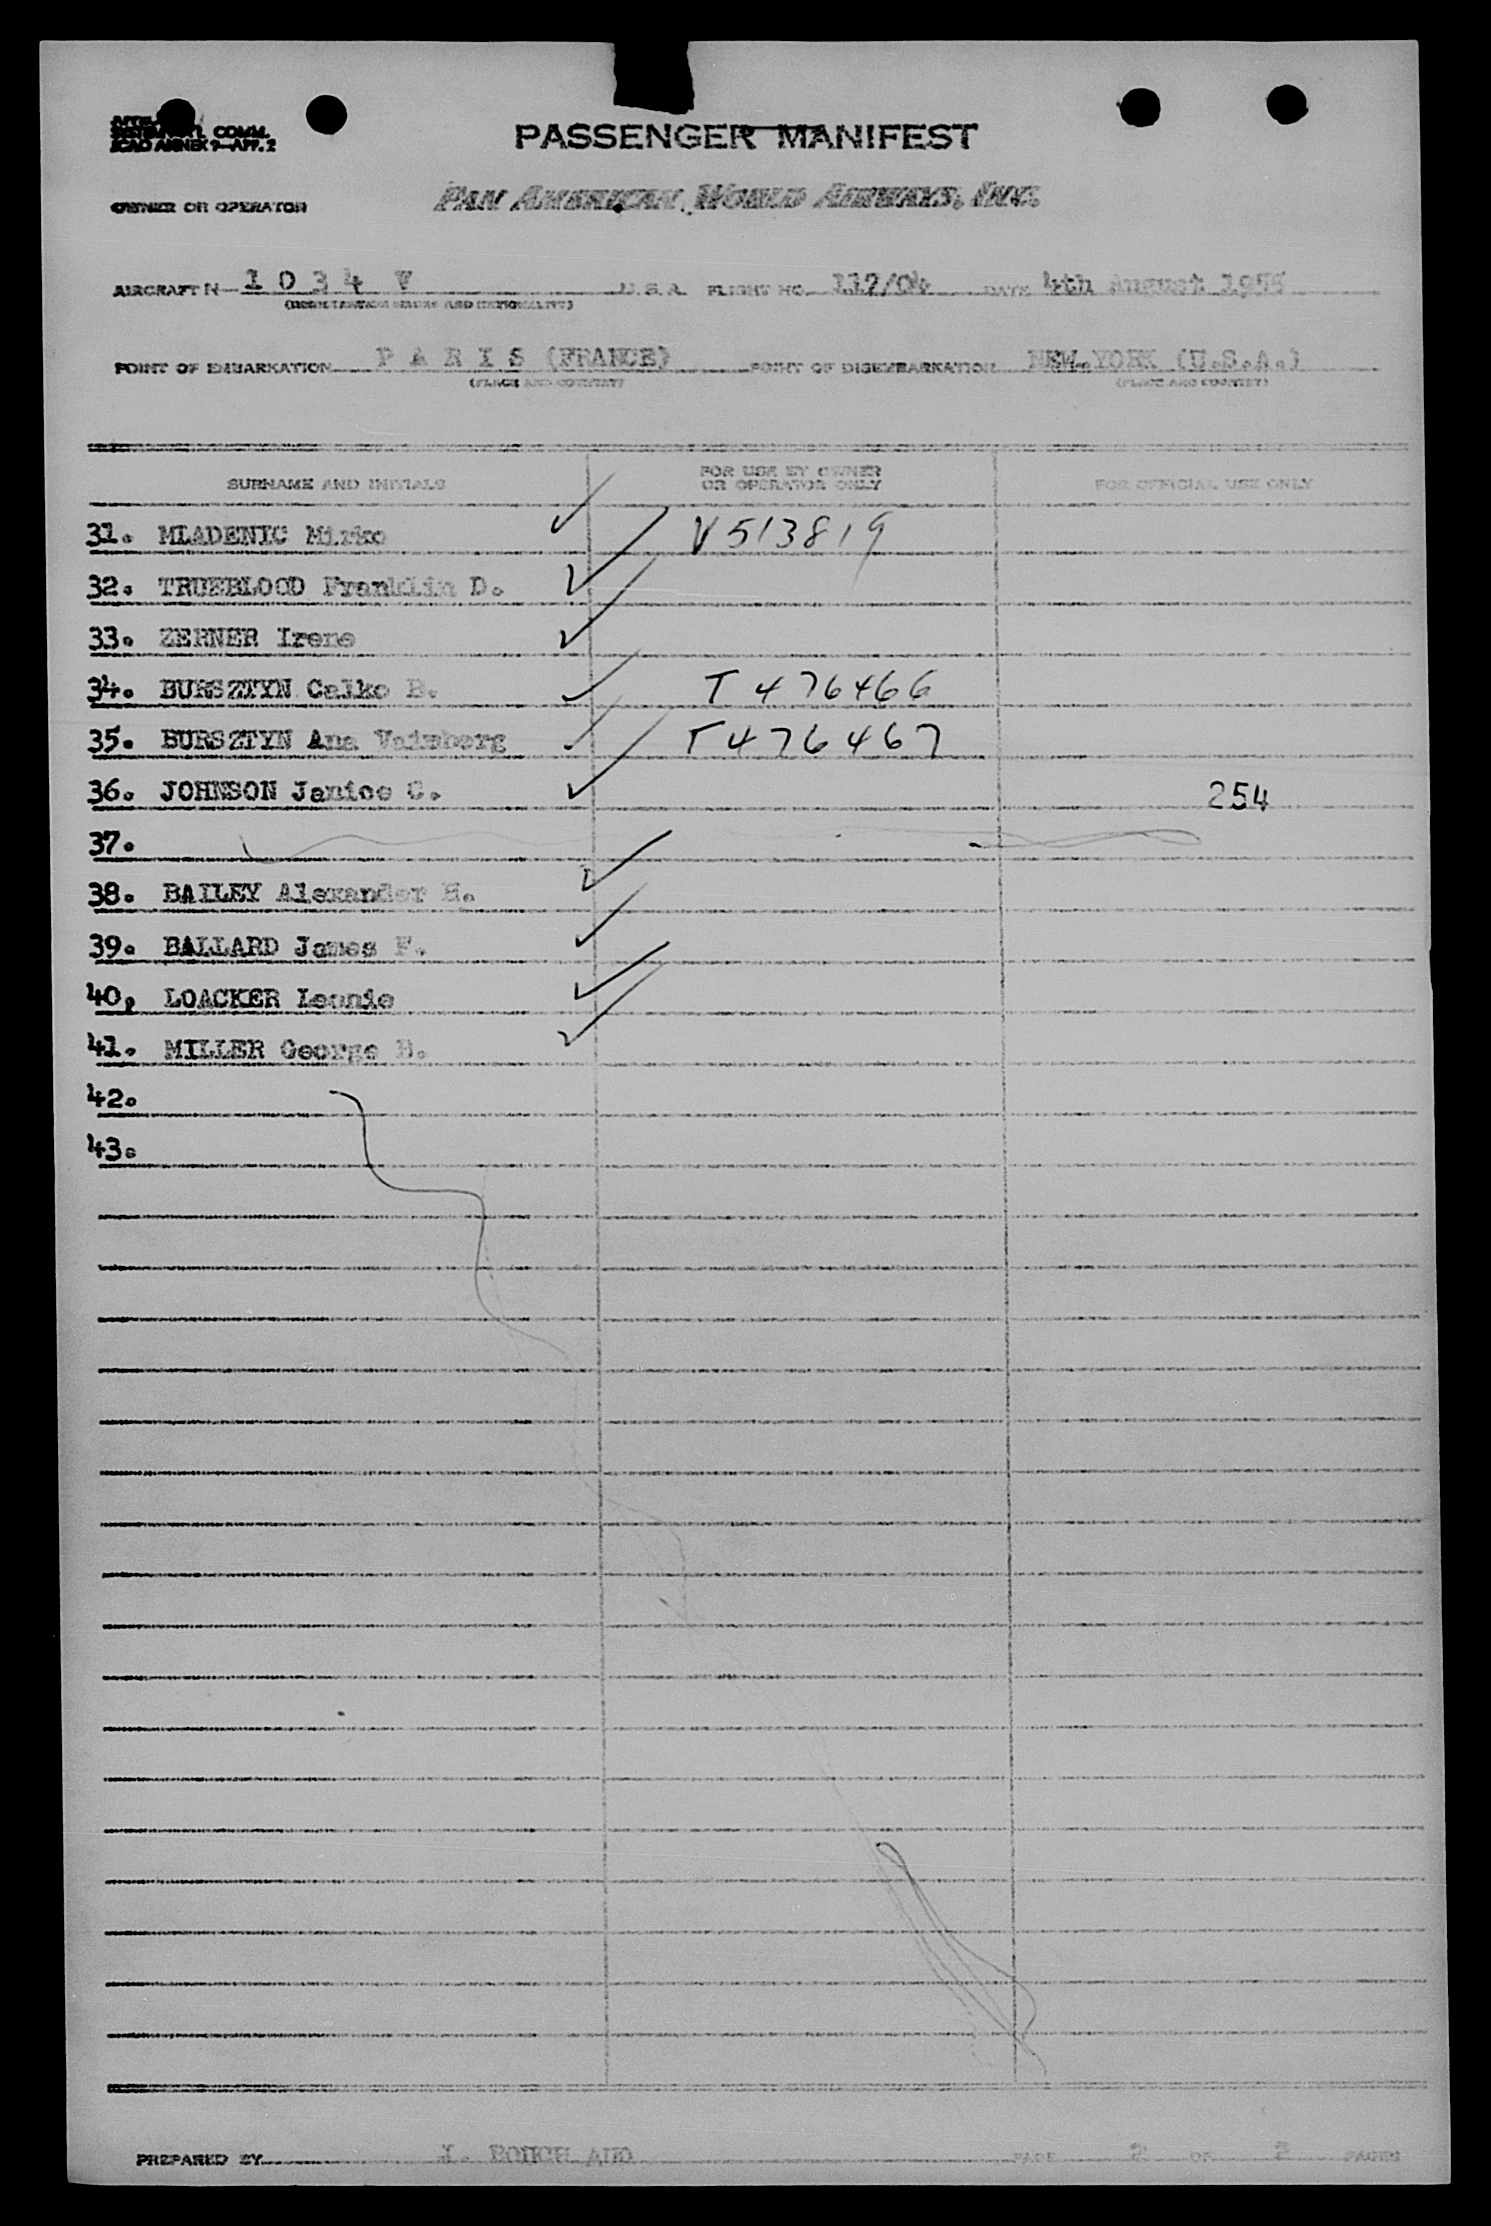 COMM.
ICAO ANNEX 9—APP. 2
PASSENGER MANIFEST
OWNER OR OPERATOR PAN AMERICAN WORLD AIRWAYS, INC.
AIRCRAFT N- 1 0 3 4 V U.S.A. FLIGHT NO. 117/04 DATE 4th August 1955
POINT OF EMBARKATION P A R I S (FRANCE) POINT OF DISEMBARKATION NEW YORK (U.S.A.)
(PLACE AND COUNTRY) (PLACE AND COUNTRY)
SURNAME AND INITIALS FOR USE BY OWNER OR OPERATOR ONLY FOR OFFICIAL USE ONLY
31. MLADENIC Mirko V513819
32. TRUEBLOOD Franklin D.
33. ZERNER Irene
34. BURSZTYN Calko B. T476466
35. BURSZTYN Ana Vaimberg T476467
36. JOHNSON Janice C. 254
37.
38. BAILEY Alexander H.
39. BALLARD James F.
40, LOACKER Leonie
41. MILLER George B.
42.
43.
PREPARED BY J. PAGE 2 OF 2 PAGES